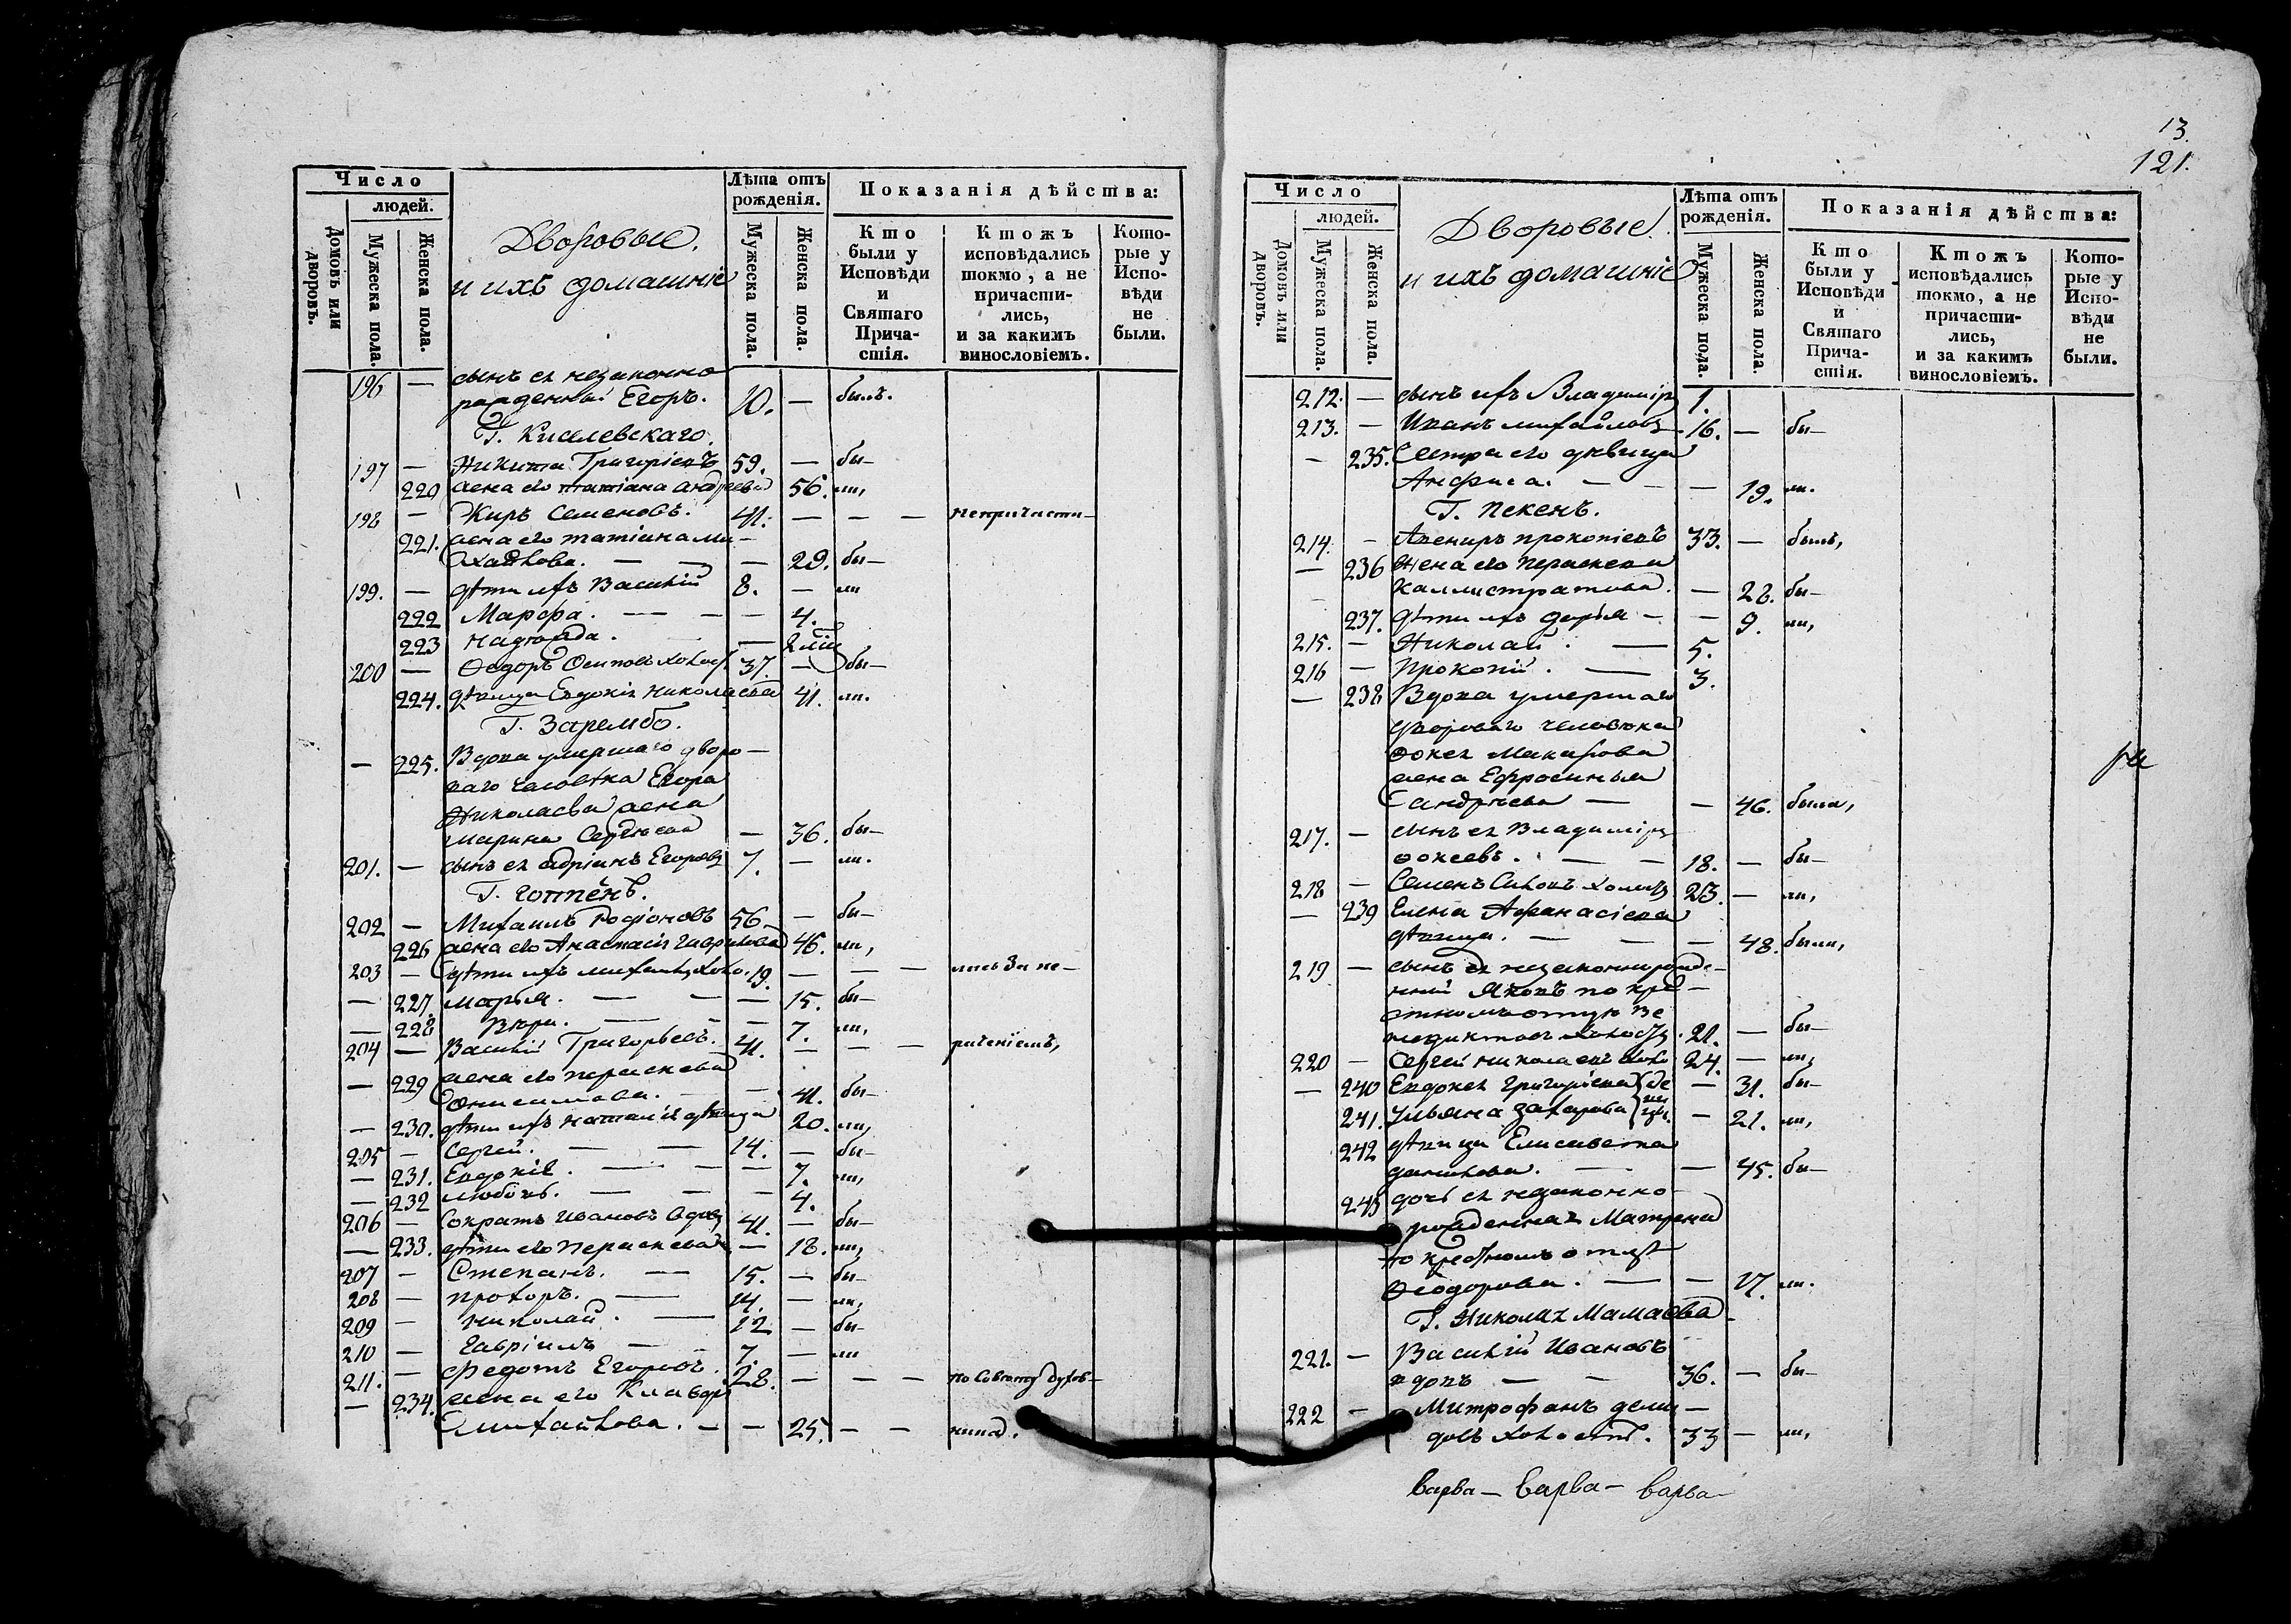 Число
людей.
Домовъ или дворовъ.
Мужеска пола.
Женска пола.
Дворовые
и ихъ домашніе
Лѣта отъ рожденія.
Мужеска пола.
Женска пола.
Показанія дѣйства:
Кто были у Исповѣди и Святаго Прича-стія.
Ктожъ исповѣдались токмо, а не причасти-лись, и за какимъ винословіемъ.
Кото-рые у Испо-вѣди не были.
196 — сынъ ея незаконно
рожденный Егоръ. 10. — былъ.
Г. Киселевскаго.
197 — Никита Григоріевъ 59. — бы—
220 жена его татіана андреева 56. ли,
198 — Киръ Семеновъ. 41. — — — непричасти—
221. жена его татіана ми—
хайлова. — — — 29. бы—
199. — дѣти ихъ Василій 8. — ли
222 Марфа. — — — 4.
223 надежда. — — 2
200 — Ѳедоръ Осиповъ холос. 37. — бы—
224. дѣвица Евдокія николаева 41. ли.
Г. Зарембо.
— 225. Вдова умершаго дворо—
ваго человѣка Егора
Николаева жена
Марина Сергѣева — 36. бы—
201. — сынъ ея адріанъ Егоровъ 7. — ли.
Г. гоппенъ.
202 — Михаилъ Родіоновъ 56 — бы—
226 жена его Анастасія гаврилова 46. ли,
203 — дѣти ихъ михаилъ холо. 19. — — — лись За не—
— 227. марья. — — — 15. бы—
— 228 Вѣра. — — — 7. ли,
204 — Василій Григорьевъ. 41. — — — раченіемъ,
— 229 жена его параскева
Онисимова. — — 41. бы—
— 230. дѣти ихъ наталія дѣвица 20. ли,
205 — Сергѣй. — — 14. — бы—
— 231. Евдокія. — — — 7. ли,
— 232 любовь. — — — 4.
206 — Сократъ Ивановъ вдовъ 41. — бы—
— 233. дѣти его параскева — 18. ли,
207 — Степанъ. — 15. — бы—
208 — прохоръ. — 14. — ли,
209 — николай. — 12 — бы—
210 — гавріилъ — — 7. — ли
211. — Федотъ Егоровъ. 28. — — — по Совѣту духов—
— 234. жена его Клавдія
михайлова. — — 25. — — ника.
13.
121.
Число
людей.
Домовъ или дворовъ.
Мужеска пола.
Женска пола.
Дворовые.
и ихъ домашніе
Лѣта отъ рожденія.
Мужеска пола.
Женска пола.
Показанія дѣйства:
Кто были у Исповѣди и Святаго Прича-стія.
Ктожъ исповѣдались токмо, а не причасти-лись, и за какимъ винословіемъ.
Кото-рые у Испо-вѣди не были.
212. — сынъ ихъ Владимиръ 1.
213. — Иванъ михайловъ 16. — бы—
— 235. Сестра его дѣвица
Анфиса. — — — 19. ли.
Г. Пекенъ.
214. — Авениръ прокопіевъ 33. — былъ,
— 236 Жена его параскева
каллистратова. — 28. бы—
237. дѣти ихъ дарья — — 9. ли,
215. — Николай. — 5.
216 — Прокопій. — 3.
— 238 Вдова умершаго
двороваго человѣка
Ѳокея Макарова
жена Ефросинья
андрѣева — — 46. была,
217. — сынъ ея Владиміръ
Ѳокеевъ. — — 18. — бы—
218 — Семенъ 23. — ли,
— 239 Елена Афанасіева
дѣвица. — — — 48. были,
219 — сынъ ея незаконнорожде—
нный Яковъ по кре—
стномъ отцу Ве
недиктовъ холостъ. 21. — бы—
220 — Сергѣй николаевъ холо 24. — ли,
— 240 Евдокея григоріева де — 31. бы—
241. Ульяна захарова ви цы. — 21. ли,
242 дѣвица Елисавета
данилова. — — 45. бы—
243 дочь ея незаконно—
рожденная Матрена
по крестномъ отцѣ
Ѳеодорова. — — 17. ли.
Г. Николая Мамаева
221. — Василій Ивановъ
вдовъ — — 36. — бы—
222 — Митрофанъ деми—
довъ холостъ. 33 — ли,
варва— варва— варва—
ра